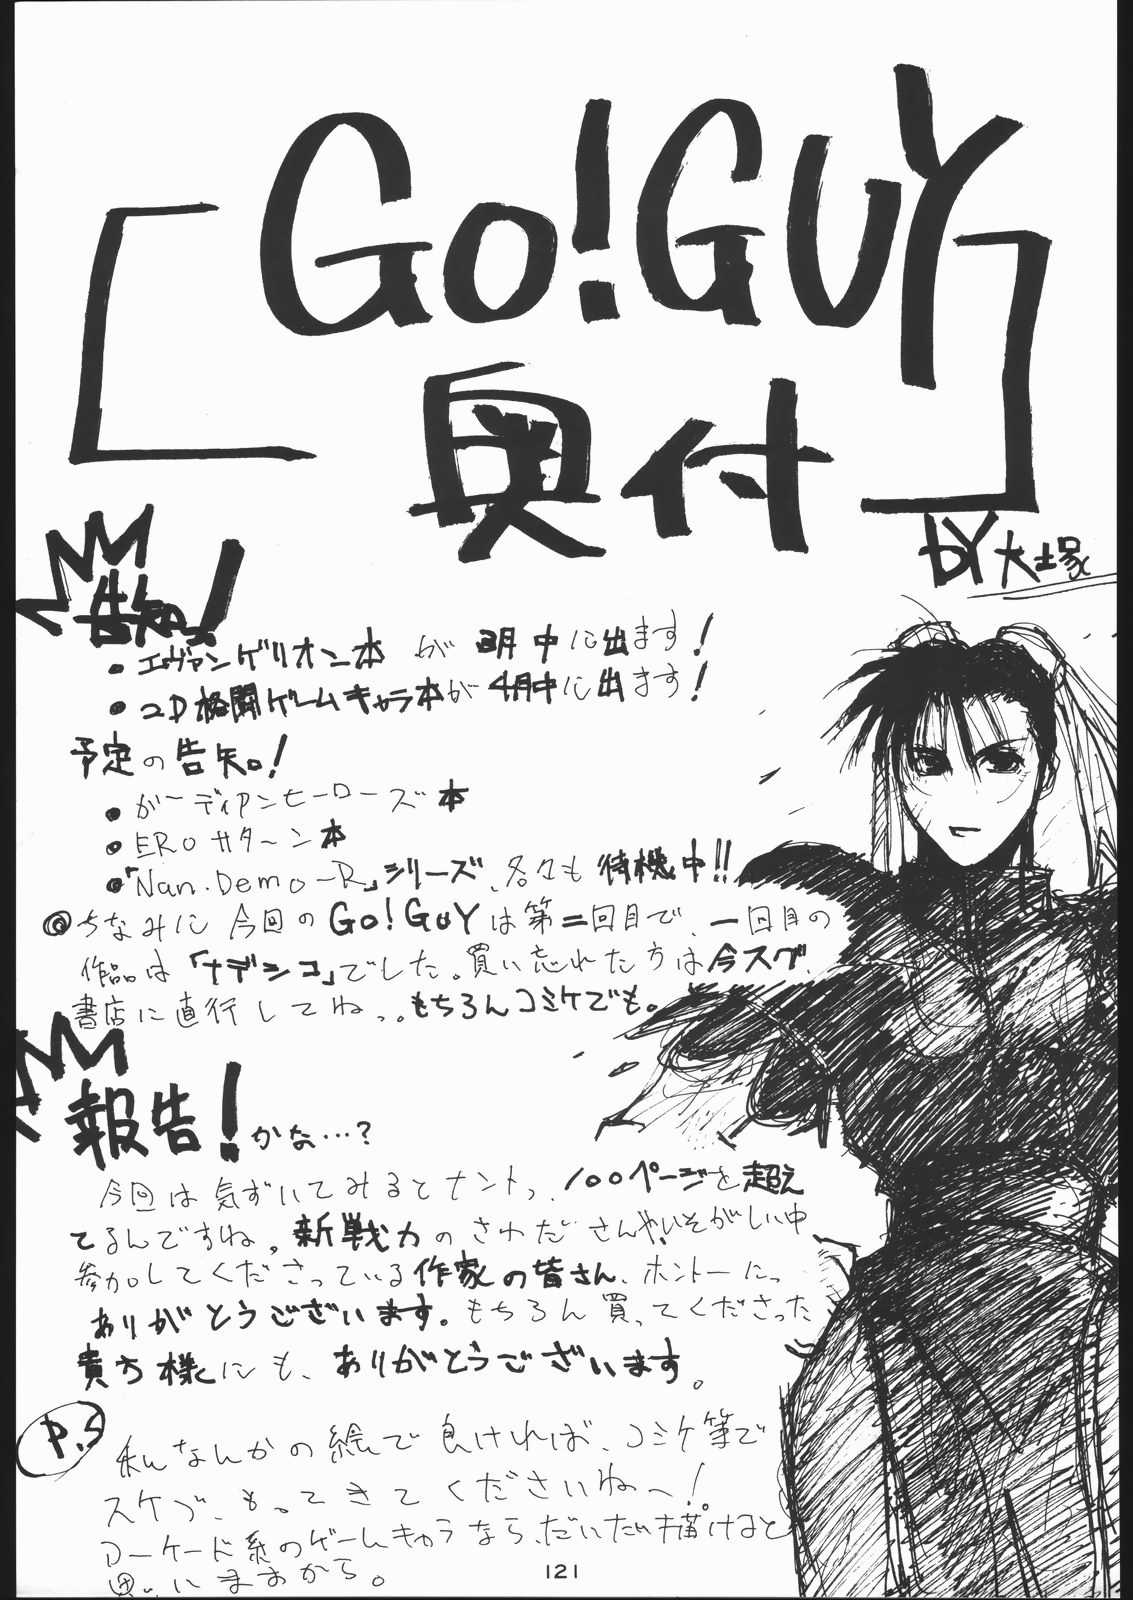 Go!GUY
奥付
by 大塚
告知!
・エヴァンゲリオン本が3月中に出ます!
・2D格闘ゲームキャラ本が4月中に出ます!
予定の告知!
・ガーディアンヒーローズ本
・EROサターン本
・「Nan.Demo-R」シリーズ、各々も待機中!!
◎ちなみに今回のGo!GUYは第二回目で、一回目の
作品は「ナデシコ」でした。買い忘れた方は今スグ、
書店に直行してねっ。もちろんコミケでも。
報告!かな…?
今回は気ずいてみるとナントっ、100ページを超え
てるんですね。新戦力のさわださんやいそがしい中
参加してくださっている作家の皆さん、ホントーにっ
ありがとうございます。もちろん買ってくださった
貴方様にも、ありがとうございます。
P.S
私なんかの絵で良ければ、コミケ等で
スケブ、もってきてくださいねへ!
アーケード系のゲームキャラなら、だいたい描けると
思いますから。
121